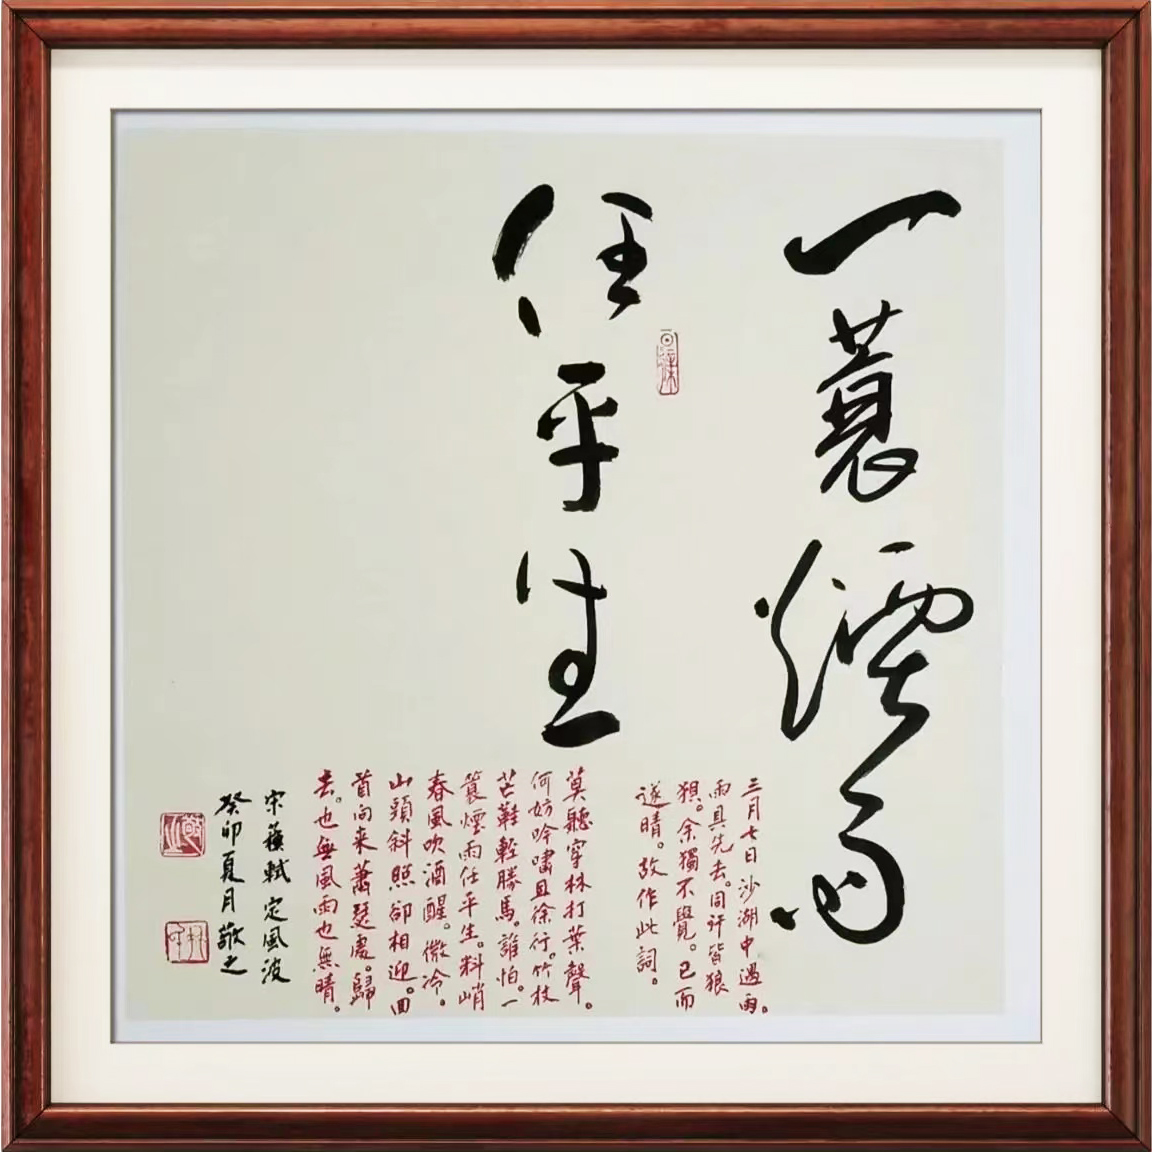 一蓑煙雨
任平生
三月七日沙湖中遇雨。
雨具先去。同行皆狼
狽。余獨不覺。已而
遂晴。故作此詞。
莫聽穿林打葉聲。
何妨吟嘯且徐行。竹杖
芒鞋輕勝馬。誰怕。一
蓑煙雨任平生。料峭
春風吹酒醒。微冷。
山頭斜照卻相迎。回
首向来蕭瑟處。歸
去。也無風雨也無晴。
宋蘇軾定風波
癸卯夏月敬之
敬之